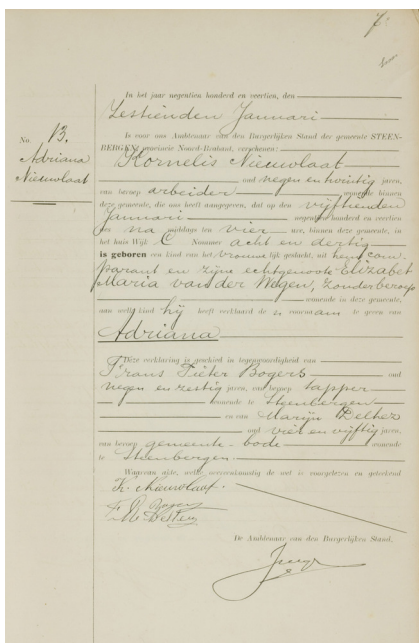 7.
In het jaar negentien honderd en veertien, den
Zestienden Januari
Is voor ons Ambtenaar van den Burgerlijken Stand der gemeente STEEN-
BERGEN, provincie Noord-Brabant, verschenen:
No. 13.
Adriana
Nieuwlaat
Kornelis Nieuwlaat
oud negen en twintig jaren,
van beroep arbeider wonende binnen
deze gemeente, die ons heeft aangegeven, dat op den vijftienden
Januari negentien honderd en veertien
des na middags ten vier ure, binnen deze gemeente, in
het huis Wijk C Nommer acht en dertig
is geboren een kind van het vrouwelijk geslacht, uit hem, com-
parant en zijne echtgenoote Elizabet
Maria van der Wegen, zonder beroep
wonende in deze gemeente,
aan welk kind hij heeft verklaard den voornaam te geven van
Adriana
Deze verklaring is geschied in tegenwoordigheid van
Frans Pieter Bogers oud
negen en zestig jaren, van beroep tapper
wonende te Steenbergen
en van Marijn Delhez
oud vier en vijftig jaren,
van beroep gemeente-bode wonende
te Steenbergen.
Waarvan akte, welke overeenkomstig de wet is voorgelezen en geteekend
K. Nieuwlaat.
De Ambtenaar van den Burgerlijken Stand,